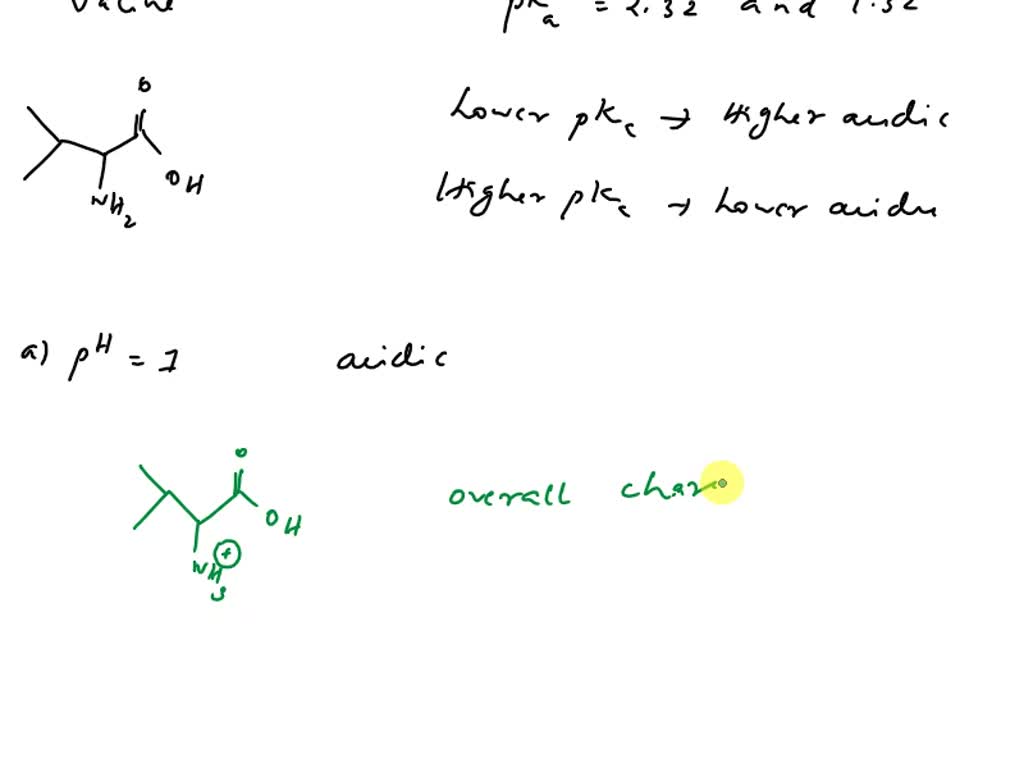 Valine
pKa = 2.32 and
O
OH
NH2
Lower pKc → Higher acidic
Higher pKc → Lower acidic
a) pH = 1 acidic
O
OH
+
NH3
overall char